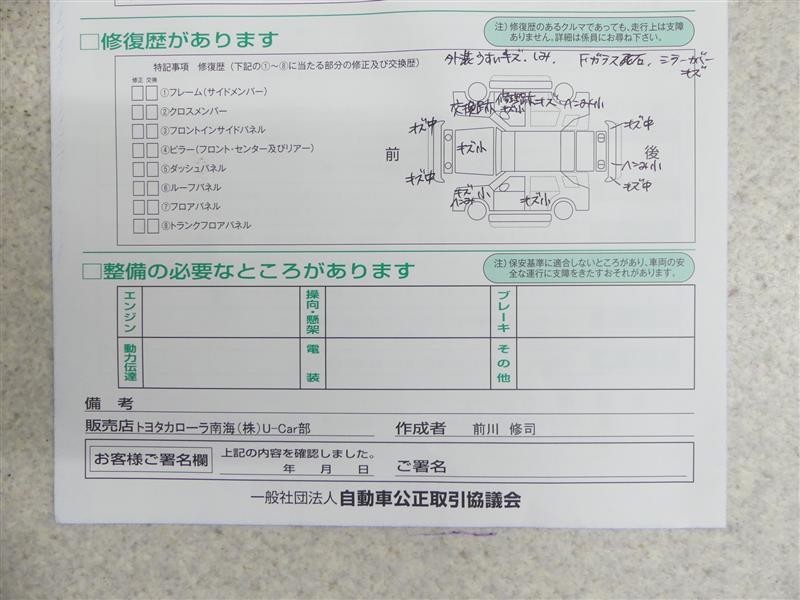 □修復歴があります
注）修復歴のあるクルマであっても、走行上は支障
ありません。詳細は係員にお尋ね下さい。
特記事項　修復歴（下記の①～⑧に当たる部分の修正及び交換歴）
修正 交換
①フレーム（サイドメンバー）
②クロスメンバー
③フロントインサイドパネル
④ピラー（フロント・センター及びリアー）
⑤ダッシュパネル
⑥ルーフパネル
⑦フロアパネル
⑧トランクフロアパネル
外装うすいキズ．しみ．
Fガラス飛石，ミラーカバー
キズ
交換跡
修理跡
キズ小
キズ
ヘコみ小
キズ中
キズ中
前
キズ小
後
ヘコみ小
キズ中
キズ中
キズ
ヘコみ 小
キズ小
□整備の必要なところがあります
注）保安基準に適合しないところがあり、車両の安
全な運行に支障をきたすおそれがあります。
エンジン
操向・懸架
ブレーキ
動力伝達
電装
その他
備　考
販売店 トヨタカローラ南海（株）U-Car部
作成者　前川　修司
お客様ご署名欄
上記の内容を確認しました。
年　月　日
ご署名
一般社団法人 自動車公正取引協議会